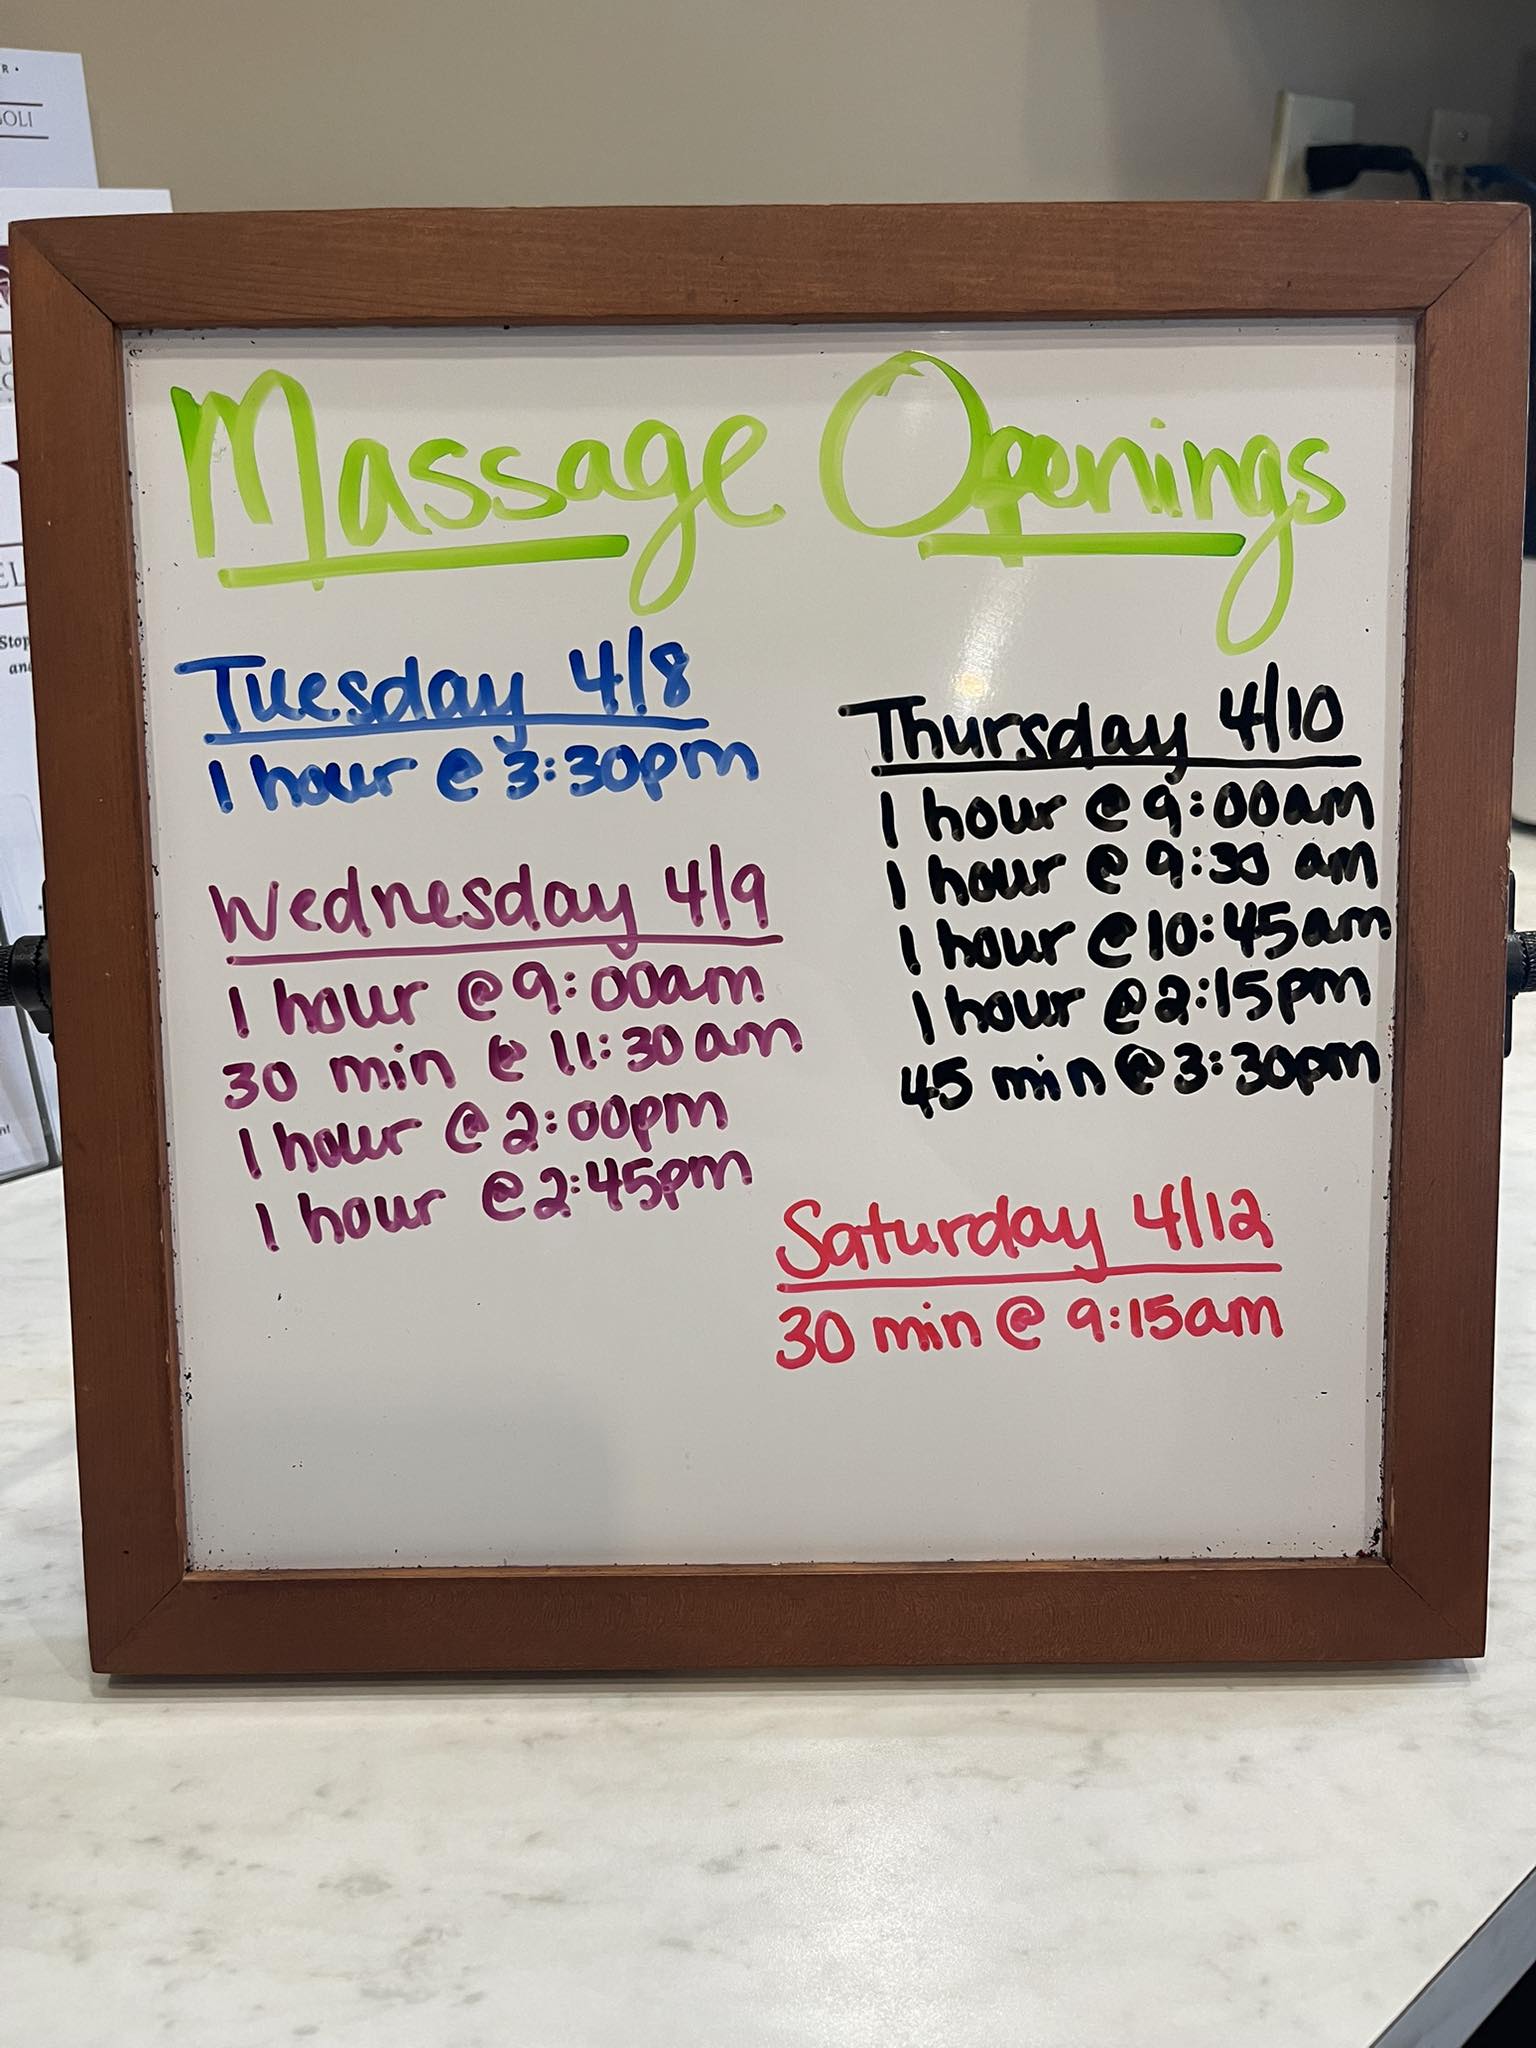 Massage Openings
Tuesday 4/8
1 hour @ 3:30pm
Wednesday 4/9
1 hour @ 9:00am
30 min @ 11:30am
1 hour @ 2:00pm
1 hour @ 2:45pm
Thursday 4/10
1 hour @ 9:00am
1 hour @ 9:30 am
1 hour @ 10:45am
1 hour @ 2:15pm
45 min @ 3:30pm
Saturday 4/12
30 min @ 9:15am
Stop